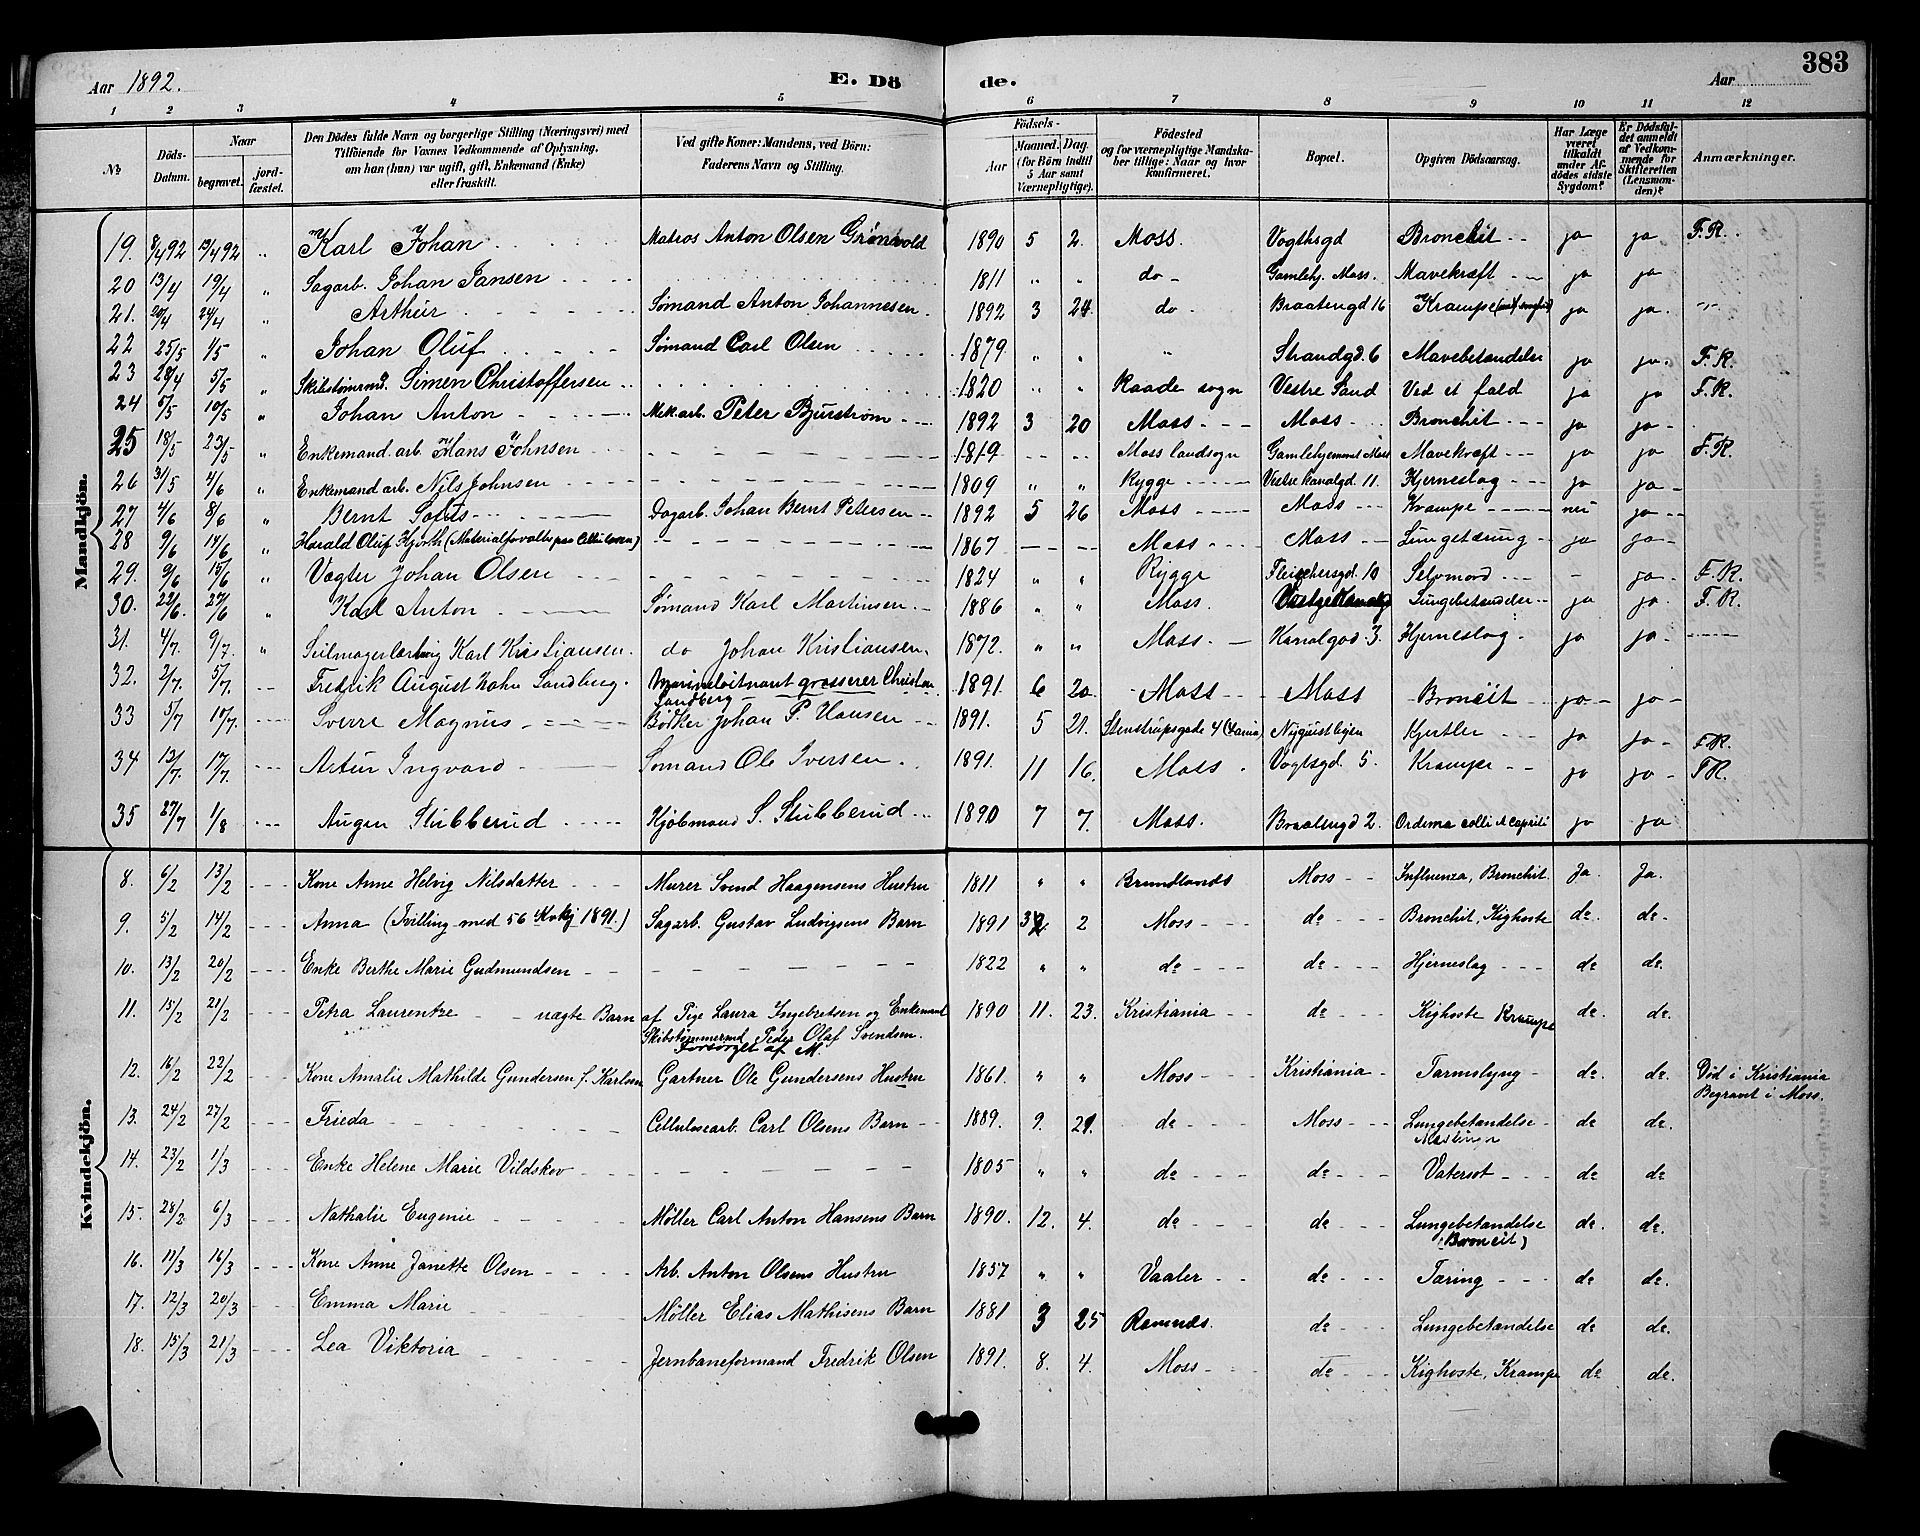 Aar 1892. E. Dö de. Aar 383
1 2 3 4 5 6 7 8 9 10 11 12
No Döds-Datum. Naar begravet. jord-fæstet. Den Dödes fulde Navn og borgerlige Stilling (Næringsvei) med Tilföiende for Voxnes Vedkommende af Oplysning, om han (hun) var ugift, gift, Enkemand (Enke) eller fraskilt. Ved gifte Koner: Mandens, ved Börn: Faderens Navn og Stilling. Födsels- Aar Maaned. Dag. (for Börn indtil 5 Aar samt Værnepligtige). Födested og for værnepligtige Mandska-ber tillige: Naar og hvor konfirmeret. Bopæl. Opgiven Dödsaarsag. Har Læge været tilkaldt under Af-dödes sidste Sygdom? Er Dödsfal-det anmeldt af Vedkom-mende for Skifteretten (Lensman-den)? Anmærkninger.
Mandkjön.
19. 8/4 92 13/4 92 „ Karl Johan Matros Anton Olsen Grønvold 1890 5 2. Moss. Vogthsgd Bronchit ja ja F.R.
20 13/4 19/4 „ Sagarb. Johan Jansen 1811 „ „ do Gamlehj. Moss. Mavekræft ja ja
21. 20/4 24/4 „ Arthur Sømand Anton Johannesen. 1892 3 24 do Braatengd 16 Krampe ja ja.
22 25/5 1/5 „ Johan Oluf Sømand Carl Olsen 1879 „ „ „ Strandgd. 6 Mavebetændelse ja ja F.R.
23 28/4 5/5 „ Skibstømrmd. Simen Christoffersen 1820 „ „ Raade sogn Vestre Sand Ved et fald ja ja F.R.
24 5/5 10/5 „ Johan Anton Mek.arb. Peter Bjurstrøm 1892 3 20 Moss Moss Bronchit ja ja
25 18/5 23/5 „ Enkemand arb. Hans Johnsen 1819 Moss landsogn Gamlehjemmet Moss Mavekræft ja ja F.R.
26 31/5 4/6 „ Enkemand arb. Nils Johnsen 1809 „ „ Rygge Vestre Kanalgd 11. Hjerneslag ja ja
27 4/6 8/6 „ Bernt Dagarb. Johan Bernt Petersen 1892 5 26 Moss Moss Krampe nei ja
28 9/6 14/6 „ Harald Oluf Hjorth (Materialforvalter paa Cellulosen) 1867 Moss Moss Lungetæring ja ja
29. 9/6 15/6 „ Vægter Johan Olsen 1824 „ „ Rygge Fleischersgd. 10 Selvmord ja F.R.
30. 22/6. 27/6 „ Karl Anton Sømand Karl Martinsen 1886 „ „ Moss. Lungebetændelse ja ja. F.R.
31. 4/7. 9/7. „ Seilmagerlærling Karl Kristiansen. do Johan Kristiansen. 1872. „ „ Moss. Kanalgad 3. Hjerneslag ja ja
32. 2/7. 5/7. Fredrik August Sandberg. Marineløitnant grosserer Christian
Sandberg 1891 6 20. Moss Moss Broncit ja ja
33 5/7 10/7. Sverre Magnus Bødker Johan P. Hansen 1891. 5 21. Stenstrupsgade 4 Kjertler ja ja F.R.
34 13/7. 17/7. Artur Ingvard Sømand Ole Iversen 1891. 11 16. Moss Vogtsgd. 5. Krampe ja ja F.R.
35 27/7 1/8 Augen Stubberud Kjøbmand S. Stubberud 1890 7 7. Moss. Braatengd 2. Ordema colli et capriti ja ja
Kvindekjön.
8. 6/2 13/2 Kone Anne Helvig Nilsdatter Murer Svend Haagensens Hustru 1811 „ „ Brundlands Moss Influenza, Bronchit. Ja. Ja.
9. 5/2 14/2 Anna (Tvilling med 56 Kvkj 1891.) Sagarb. Gustav Ludvigsens Barn 1891 2 Moss do. Bronchit, Kighoste do. do.
10. 13/2 20/2 Enke Berthe Marie Gudmundsen 1822 „ „ do do. Hjerneslag do do.
11. 15/2 21/2 Petra Laurentze uægte Barn af Pige Laura Ingebretsen og Enkemand 1890 11. 23. Kristiania do Kighoste Krampe do. do.
Skibstømmermd Peder Olaf Svendsen.
Forsørget af M.
12. 16/2 22/2 Kone Amalie Mathilde Gundersen f. Karlsen Gartner Ole Gundersens Hustru 1861. „ „ Moss Kristiania Tarmslyng do. do. Død i Kristiania
Begravet i Moss.
13. 24/2 27/2 Frieda Cellulosearb. Carl Olsens Barn 1889. 9. 21. do Moss Lungebetændelse do do.
Mæslinger
14. 23/2 1/3 Enke Helene Marie Vildskov 1805 „ „ do do. Vatersot do do
15. 28/2 6/3 Nathalie Eugenie Møller Carl Anton Hansens Barn 1890. 12. 4. do do Lungebetændelse do. do.
(Broncit)
16. 11/3 16/3 Kone Anne Janette Olsen Arb. Anton Olsens Hustru 1857 „ „ Vaaler do Tæring do do.
17. 12/3 20/3 Emma Marie Møller Elias Mathisens Barn 1881 3 25 Ramnæs. do Lungebetændelse do do.
18. 15/3 21/3 Lea Viktoria Jernbaneformand Fredrik Olsen 1891. 8. 4. Moss do Kighoste, Krampe do do.